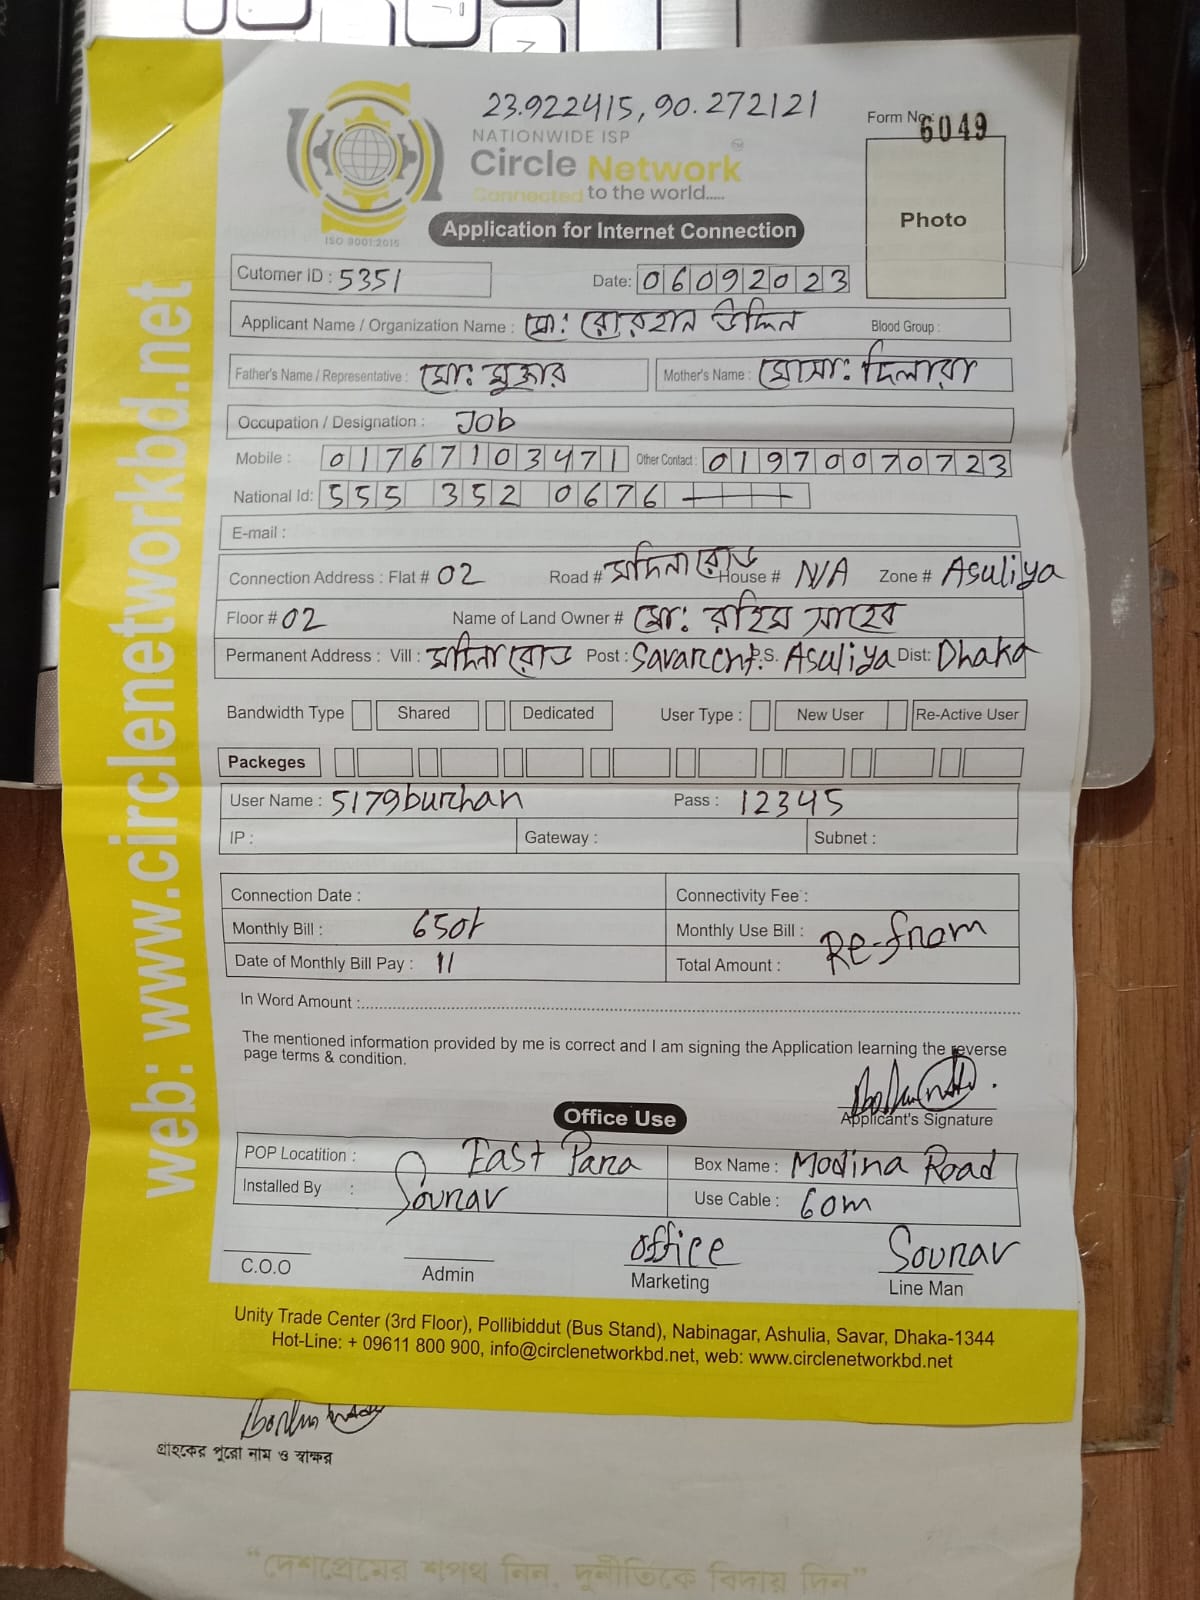 23.922415, 90.272121
NATIONWIDE ISP
Circle Network
Connected to the world.....
ISO 9001:2015
Form No: 6049
Photo
Application for Internet Connection
Cutomer ID : 5351 Date: 06092023
Applicant Name / Organization Name : মো: বোরহান উদ্দিন Blood Group :
Father's Name / Representative : মো: মুক্তার Mother's Name : মোসা: দিলারা
Occupation / Designation : Job
Mobile : 01767103471 Other Contact : 01970070723
National Id: 555 352 0676
E-mail :
Connection Address : Flat # 02 Road # মদিনা রোড House # N/A Zone # Asuliya
Floor # 02 Name of Land Owner # মো: রহিম সাহেব
Permanent Address : Vill : মদিনা রোড Post : Savarcnt P.S. Asuliya Dist: Dhaka
Bandwidth Type Shared Dedicated User Type : New User Re-Active User
Packeges
User Name : 5179burhan Pass : 12345
IP : Gateway : Subnet :
Connection Date : Connectivity Fee :
Monthly Bill : 650৳ Monthly Use Bill : Re-from
Date of Monthly Bill Pay : 11 Total Amount :
In Word Amount :
The mentioned information provided by me is correct and I am signing the Application learning the reverse
page terms & condition.
Applicant's Signature
Office Use
POP Locatition : East Para Box Name : Modina Road
Installed By : Sourav Use Cable : 60m
C.O.O Admin office Marketing Sourav Line Man
Unity Trade Center (3rd Floor), Pollibiddut (Bus Stand), Nabinagar, Ashulia, Savar, Dhaka-1344
Hot-Line: + 09611 800 900, info@circlenetworkbd.net, web: www.circlenetworkbd.net
web: www.circlenetworkbd.net
গ্রাহকের পুরো নাম ও স্বাক্ষর
“দেশপ্রেমের শপথ নিন, দুর্নীতিকে বিদায় দিন”